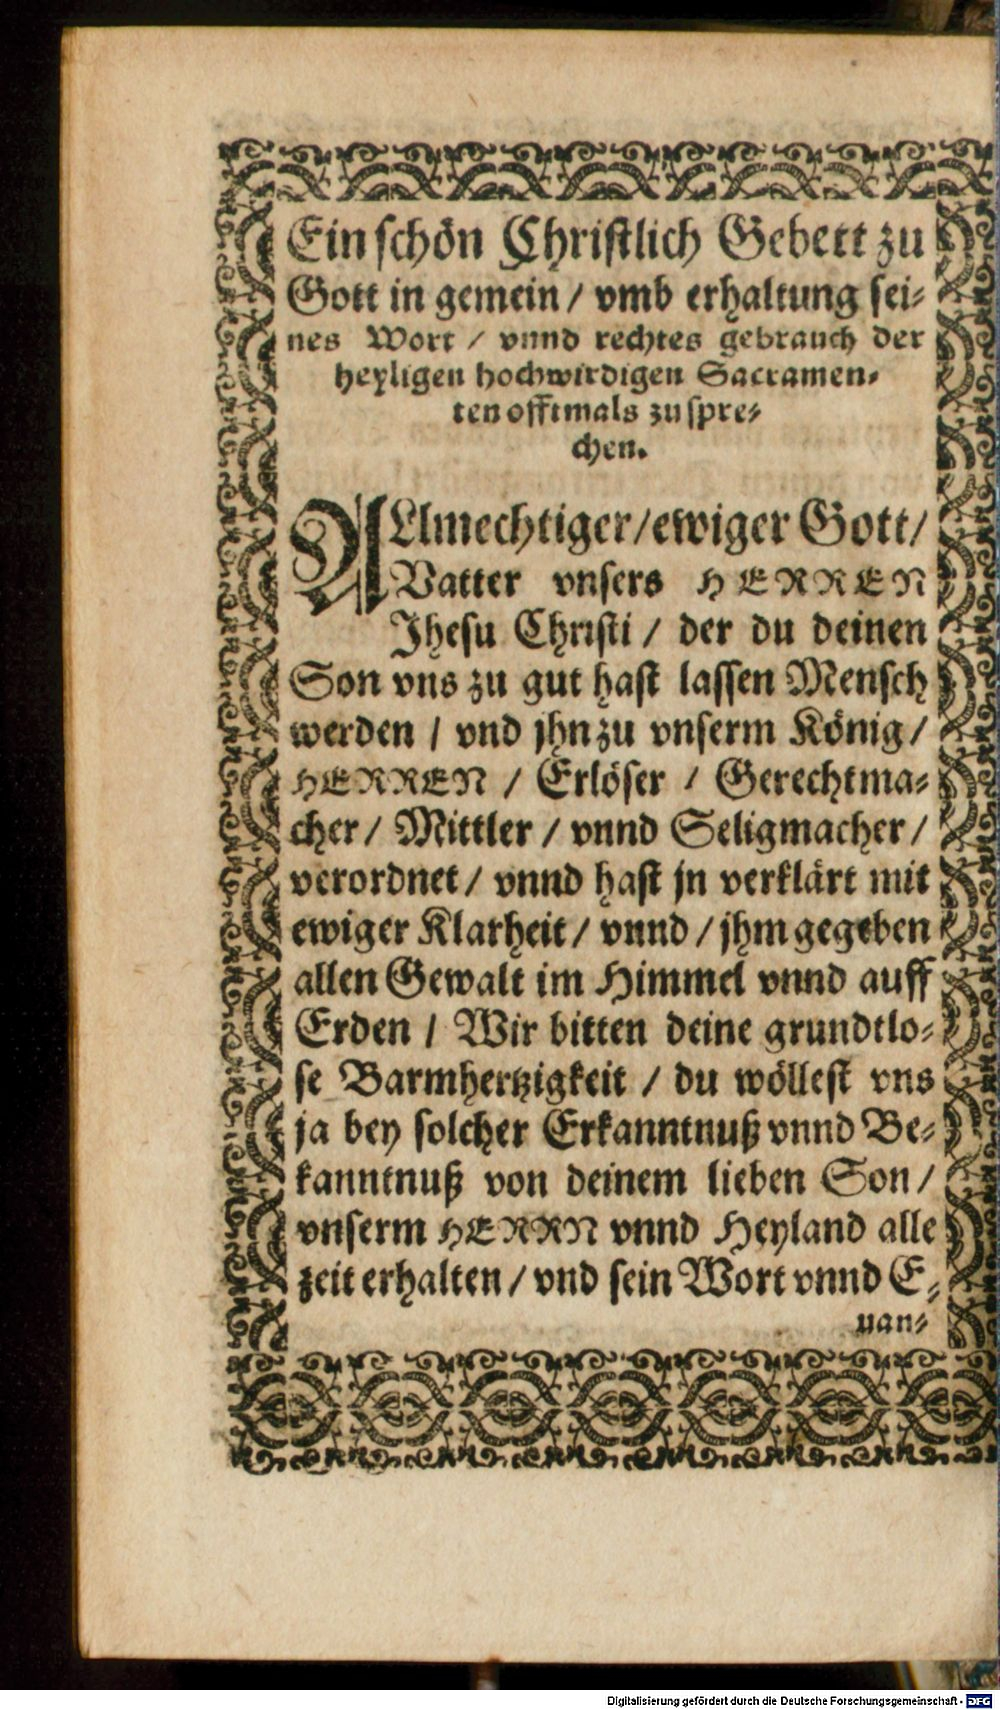 Ein schön Christlich Gebett zu
Gott in gemein / vmb erhaltung sei-
nes Wort / vnnd rechtes gebrauch der
heyligen hochwirdigen Sacramen-
ten offtmals zu spre-
chen.
ALlmechtiger / ewiger Gott /
Vatter vnsers HERREN
Jhesu Christi / der du deinen
Son vns zu gut hast lassen Mensch
werden / vnd jhn zu vnserm König /
HERREN / Erlöser / Gerechtma-
cher / Mittler / vnnd Seligmacher /
verordnet / vnnd hast jn verklärt mit
ewiger Klarheit / vnnd / jhm gegeben
allen Gewalt im Himmel vnnd auff
Erden / Wir bitten deine grundtlo-
se Barmhertzigkeit / du wöllest vns
ja bey solcher Erkanntnuß vnnd Be-
kanntnuß von deinem lieben Son /
vnserm HERRN vnnd Heyland alle
zeit erhalten / vnd sein Wort vnnd E-
uan-
Digitalisierung gefördert durch die Deutsche Forschungsgemeinschaft - DFG